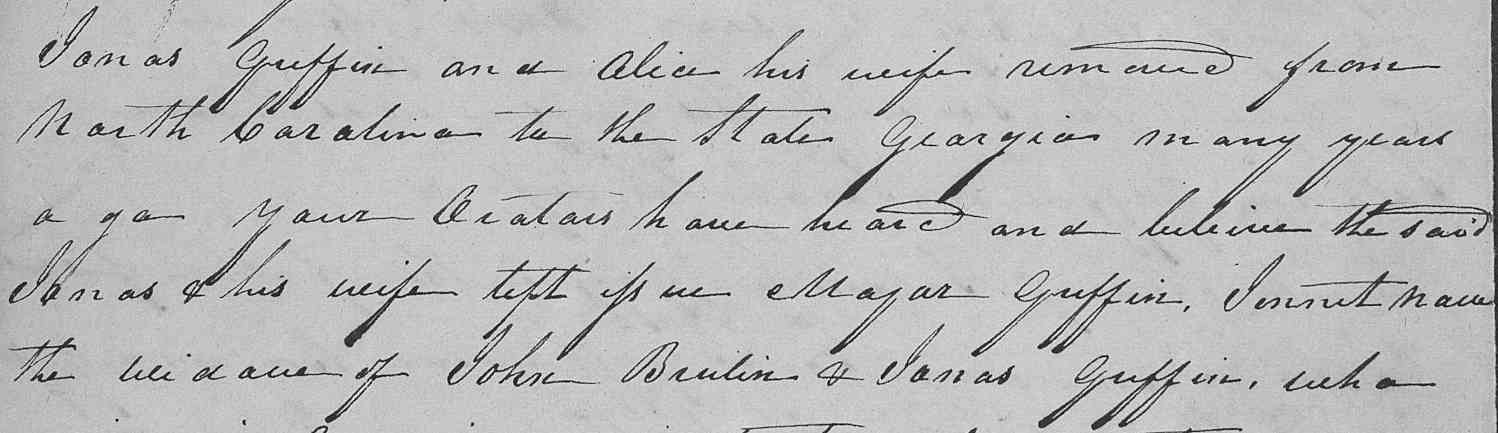 Jonas Griffin and Alice his wife removed from
North Carolina to the State Georgia many years
ago your Orators have heard and beleive the said
Jonas & his wife left issue Major Griffin, Jennet now
the widow of John & Jonas Griffin, who